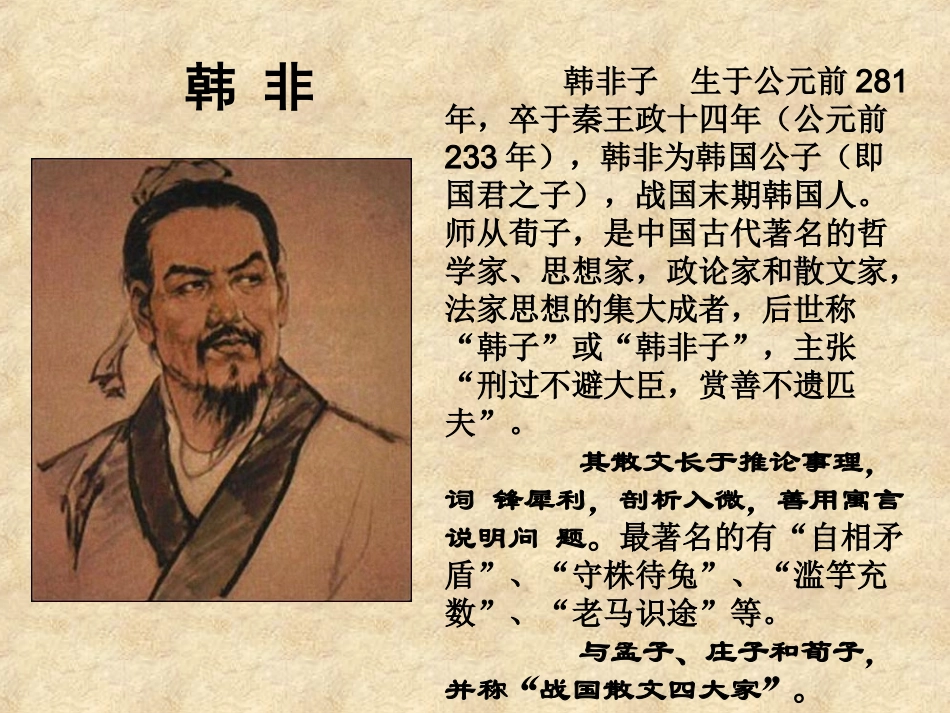 韩 非
韩非子　生于公元前 281
年，卒于秦王政十四年（公元前
233 年），韩非为韩国公子（即
国君之子），战国末期韩国人。
师从荀子，是中国古代著名的哲
学家、思想家，政论家和散文家，
法家思想的集大成者，后世称
“韩子”或“韩非子”，主张
“刑过不避大臣，赏善不遗匹
夫”。
其散文长于推论事理，
词 锋犀利，剖析入微，善用寓言
说明问 题。最著名的有“自相矛
盾”、“守株待兔”、“滥竽充
数”、“老马识途”等。
与孟子、庄子和荀子，
并称“战国散文四大家”。